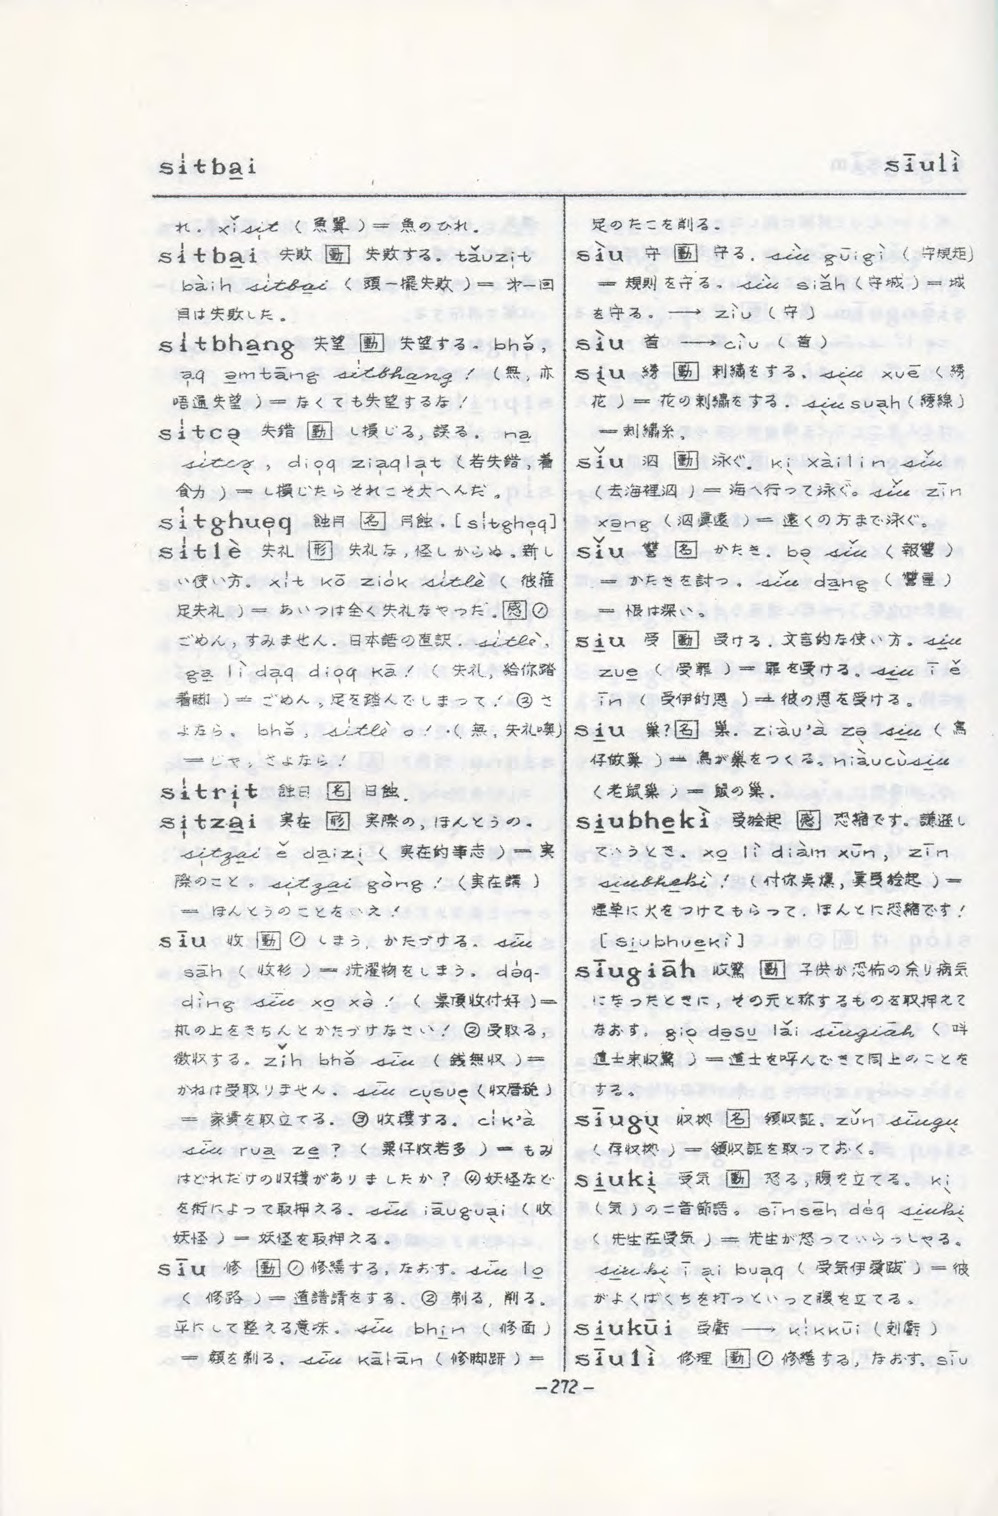 si̍tba̱i
sīulì
れ. xǐsi̍t ( 魚翼 ) = 魚のひれ.
si̍tba̱i 失敗 [動] 失敗する. tǎuzi̍t
bàih si̍tba̱i ( 頭一擺失敗 ) = 才一回
目は失敗した。
si̍tbha̱ng 失望 [動] 失望する. bhə̌,
a̱q a̱mtāng si̍tbha̱ng ! ( 無, 亦
唔通失望 ) = なくても失望するな!
si̍tcə̱ 失錯 [動] し損じる, 誤る. na̱
si̍tcə̱, di̱o̱q zi̱a̱qla̱t ( 若失錯, 着
食力 ) = し損じたらそれこそ大へんだ。
si̍tghu̱e̱q 蝕月 [名] 月蝕. [si̍tghe̱q]
si̍tlè 失礼 [形] 失礼な, 怪しからぬ. 新し
い使い方. xi̍t kō ziók si̍tlè ( 彼箍
足失礼 ) = あいつは全く失礼なやつだ. [感] ①
ごめん, すみません. 日本語の直訳. si̍tlè,
ga̱ lì da̱q di̱o̱q kā ! ( 失礼, 給你踏
着脚 ) = ごめん, 足を踏んでしまって! ② さ
よなら. bhə̌, si̍tlè o ! ( 無, 失礼噢 )
= じゃ, さよなら!
si̍tri̱t 蝕日 [名] 日蝕.
si̱tza̱i 実在 [形] 実際の, ほんとうの.
si̱tza̱i ě da̱izi̱ ( 実在的事志 ) = 実
際のこと. si̱tza̱i gòng ! ( 実在講 )
= ほんとうのことをいえ!
sīu 收 [動] ① しまう, かたづける. sīu
sāh ( 收衫 ) = 洗濯物をしまう. də́q-
dìng sīu xo̱ xə̀ ! ( 桌頂收付好 ) =
机の上をきちんとかたづけなさい! ② 受取る,
徴収する. zǐh bhə̌ sīu ( 銭無収 ) =
かねは受取りません. sīu cu̱sue̱ ( 収厝税 )
= 家賃を取立てる. ③ 收穫する. ci̍k'à
sīu rua̱ ze̱ ? ( 粟仔收若多 ) = もみ
はどれだけの収穫がありましたか? ④ 妖怪など
を術によって取押える. sīu iāugua̱i ( 收
妖怪 ) = 妖怪を取押える。
sīu 修 [動] ① 修繕する, なおす. sīu lo̱
( 修路 ) = 道譜請をする. ② 剃る, 削る.
平にして整える意味. sīu bhi̱n ( 修面 )
= 顔を剃る. sīu kālān ( 修脚趼 ) =
足のたこを削る。
sìu 守 [動] 守る. sìu gūigì ( 守規矩 )
= 規則を守る. sìu siǎh ( 守城 ) = 城
を守る。 → zìu ( 守 )
sìu 首 → cìu ( 首 )
si̱u 綉 [動] 刺繡をする. si̱u xuē ( 綉
花 ) = 花の刺繡をする. si̱u su̱ah ( 綉線 )
= 刺繡糸.
sǐu 泅 [動] 泳ぐ. ki̱ xàilìn sǐu
( 去海裡泅 ) = 海へ行って泳ぐ。 sǐu zīn
xa̱ng ( 泅真遠 ) = 遠くの方まで泳ぐ.
sǐu 讐 [名] かたき. bə̱ sǐu ( 報讐 )
= かたきを討つ. sǐu da̱ng ( 讐重 )
= 恨は深い。
si̱u 受 [動] 受ける. 文言的な使い方. si̱u
zue̱ ( 受罪 ) = 罪を受ける. si̱u ī ě
īn ( 受伊的恩 ) = 彼の恩を受ける。
si̱u 巣? [名] 巣. ziàu'à zə̱ si̱u ( 鳥
仔做巣 ) = 鳥が巣をつくる。 niàucùsi̱u
( 老鼠巣 ) = 鼠の巣.
si̱ubhe̱kì 受絵起 [感] 恐縮です. 謙遜し
ていうとき. xo̱ lì diàm xūn, zīn
si̱ubhe̱kì ! ( 付你点燻, 真受絵起 ) =
煙草に火をつけてもらって, ほんとに恐縮です!
[si̱ubhu̱ekì]
sīugiāh 收驚 [動] 子供が恐怖の余り病気
になったときに, その元と称するものを取押えて
なおす. gi̱o da̱su̱ lǎi sīugiāh ( 叫
道士来収驚 ) = 道士を呼んできて同上のことを
する。
sīugu̱ 収拠 [名] 領収証. zǔn sīugu̱
( 存収拠 ) = 領収証を取っておく。
si̱uki̱ 受気 [動] 怒る, 腹を立てる。 ki̱
( 気 ) の二音節語。 sīnsēh dé̱q si̱uki̱
( 先生在受気 ) = 先生が怒っていらっしゃる。
si̱u-ki̱ ī a̱i bua̱q ( 受気伊愛跋 ) = 彼
がよくばくちを打つといって腹を立てる。
si̱ukūi 受虧 → ki̍kkūi ( 剋虧 )
sīulì 修理 [動] ① 修繕する, なおす. sīu
—272—